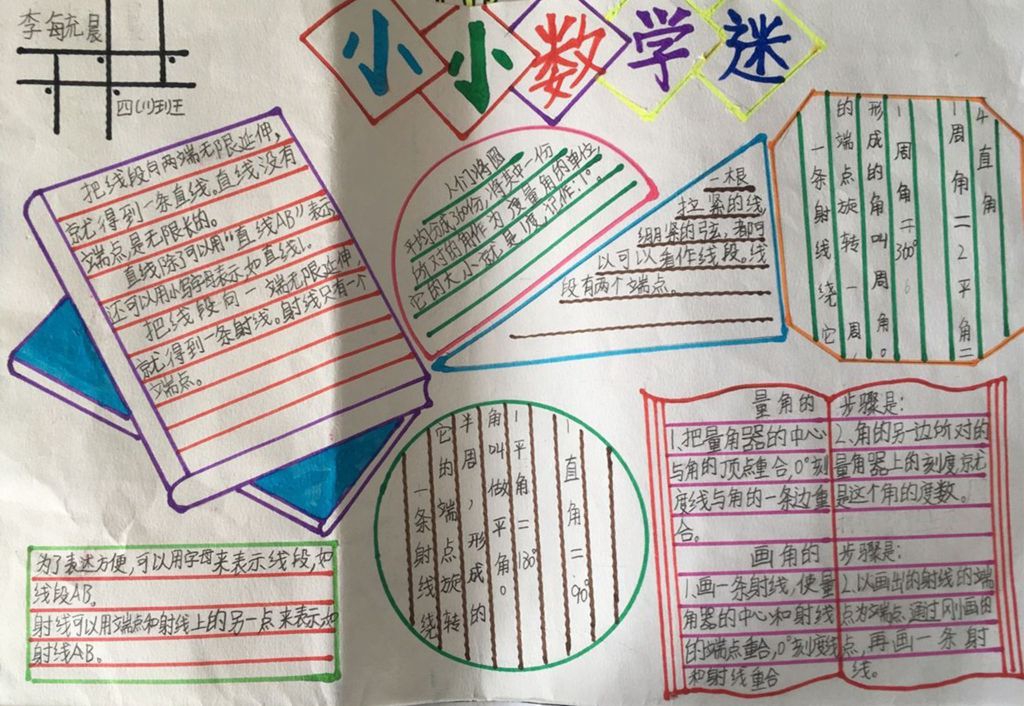 李毓晨
四(1)班
小小数学迷
把线段向两端无限延伸,
就得到一条直线。直线没有
端点,是无限长的。
直线除了可以用“直线AB”表示
还可以用小写字母表示,如直线l。
把线段向一端无限延伸,
就得到一条射线。射线只有一个
端点。
人们将圆
平均分成360份,将其中一份
所对的角作为度量角的单位,
它的大小就是1度,记作:1°。
一根
拉紧的线
绷紧的弦,都可
以可以看作线段。线
段有两个端点。
1直角
4
1周角=2平角=
1周角=360°
形成的角叫周角。
的端点旋转一周,
一条射线绕它
1直角=90°
1平角=180°
角叫做平角。
半周,形成的
它的端点旋转
一条射线绕
量角的步骤是:
1.把量角器的中心
与角的顶点重合,0°刻
度线与角的一条边重
合。
2.角的另一边所对的
量角器上的刻度就
是这个角的度数。
画角的步骤是:
1.画一条射线,使量
角器的中心和射线
的端点重合,0°刻度线
和射线重合
2.以画出的射线的端
点为端点,通过刚画的
点,再画一条射
线。
为了表述方便,可以用字母来表示线段,如
线段AB。
射线可以用端点和射线上的另一点来表示,如
射线AB。